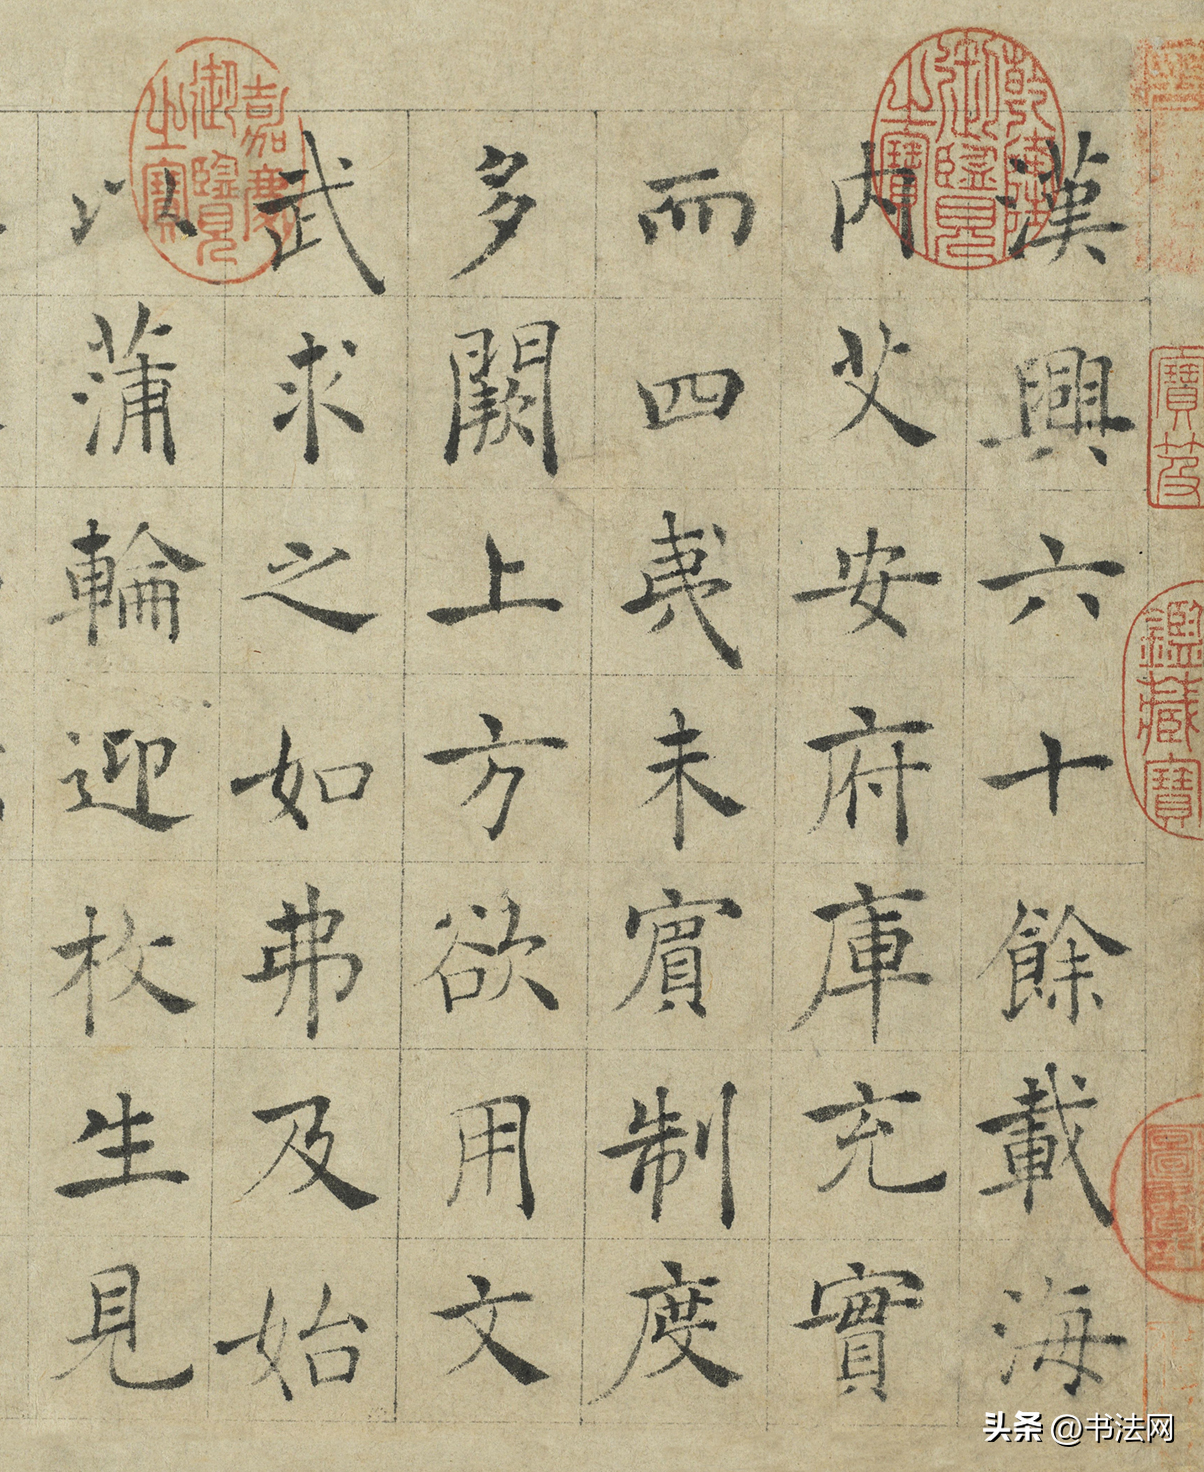 漢興六十餘載海
內艾安府庫充實
而四夷未賓制度
多闕上方欲用文
武求之如弗及始
以蒲輪迎枚生見
乾隆御覽之寶
嘉慶御覽之寶
寶笈
鑑藏寶
头条 @书法网